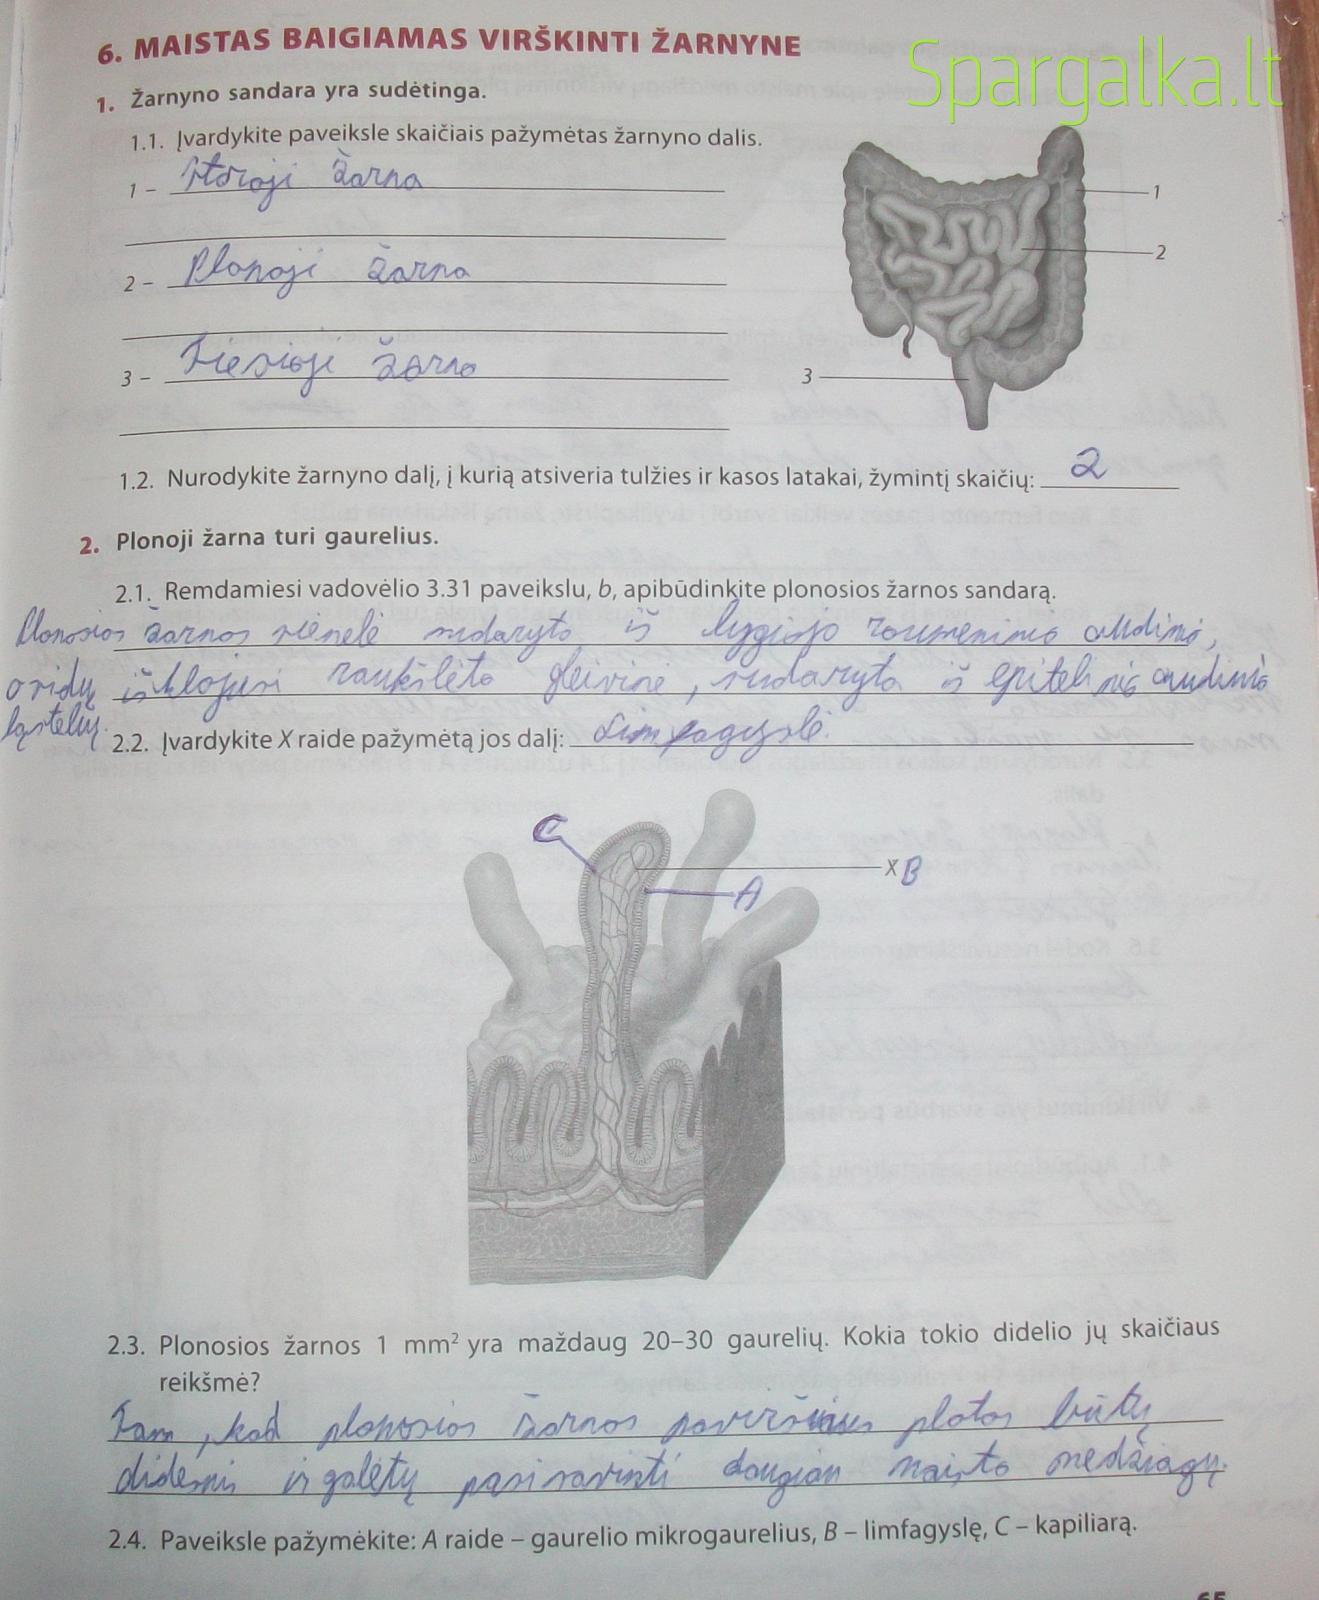 Spargalka.lt
6. MAISTAS BAIGIAMAS VIRŠKINTI ŽARNYNE
1. Žarnyno sandara yra sudėtinga.
1.1. Įvardykite paveiksle skaičiais pažymėtas žarnyno dalis.
1 – Storoji žarna
2 – Plonoji žarna
3 – Tiesioji žarna
1
2
3
1.2. Nurodykite žarnyno dalį, į kurią atsiveria tulžies ir kasos latakai, žymintį skaičių: 2
2. Plonoji žarna turi gaurelius.
2.1. Remdamiesi vadovėlio 3.31 paveikslu, b, apibūdinkite plonosios žarnos sandarą.
Plonosios žarnos sienelė sudaryta iš lygiojo raumeninio audinio,
o vidų išklojusi raukšlėta gleivinė, sudaryta iš epitelinio audinio
ląstelių.
2.2. Įvardykite X raide pažymėtą jos dalį: Limfagyslė.
C
X B
A
2.3. Plonosios žarnos 1 mm² yra maždaug 20–30 gaurelių. Kokia tokio didelio jų skaičiaus
reikšmė?
Tam, kad plonosios žarnos paviršiaus plotas būtų
didesnis ir galėtų pasisavinti daugiau maisto medžiagų.
2.4. Paveiksle pažymėkite: A raide – gaurelio mikrogaurelius, B – limfagyslę, C – kapiliarą.
65